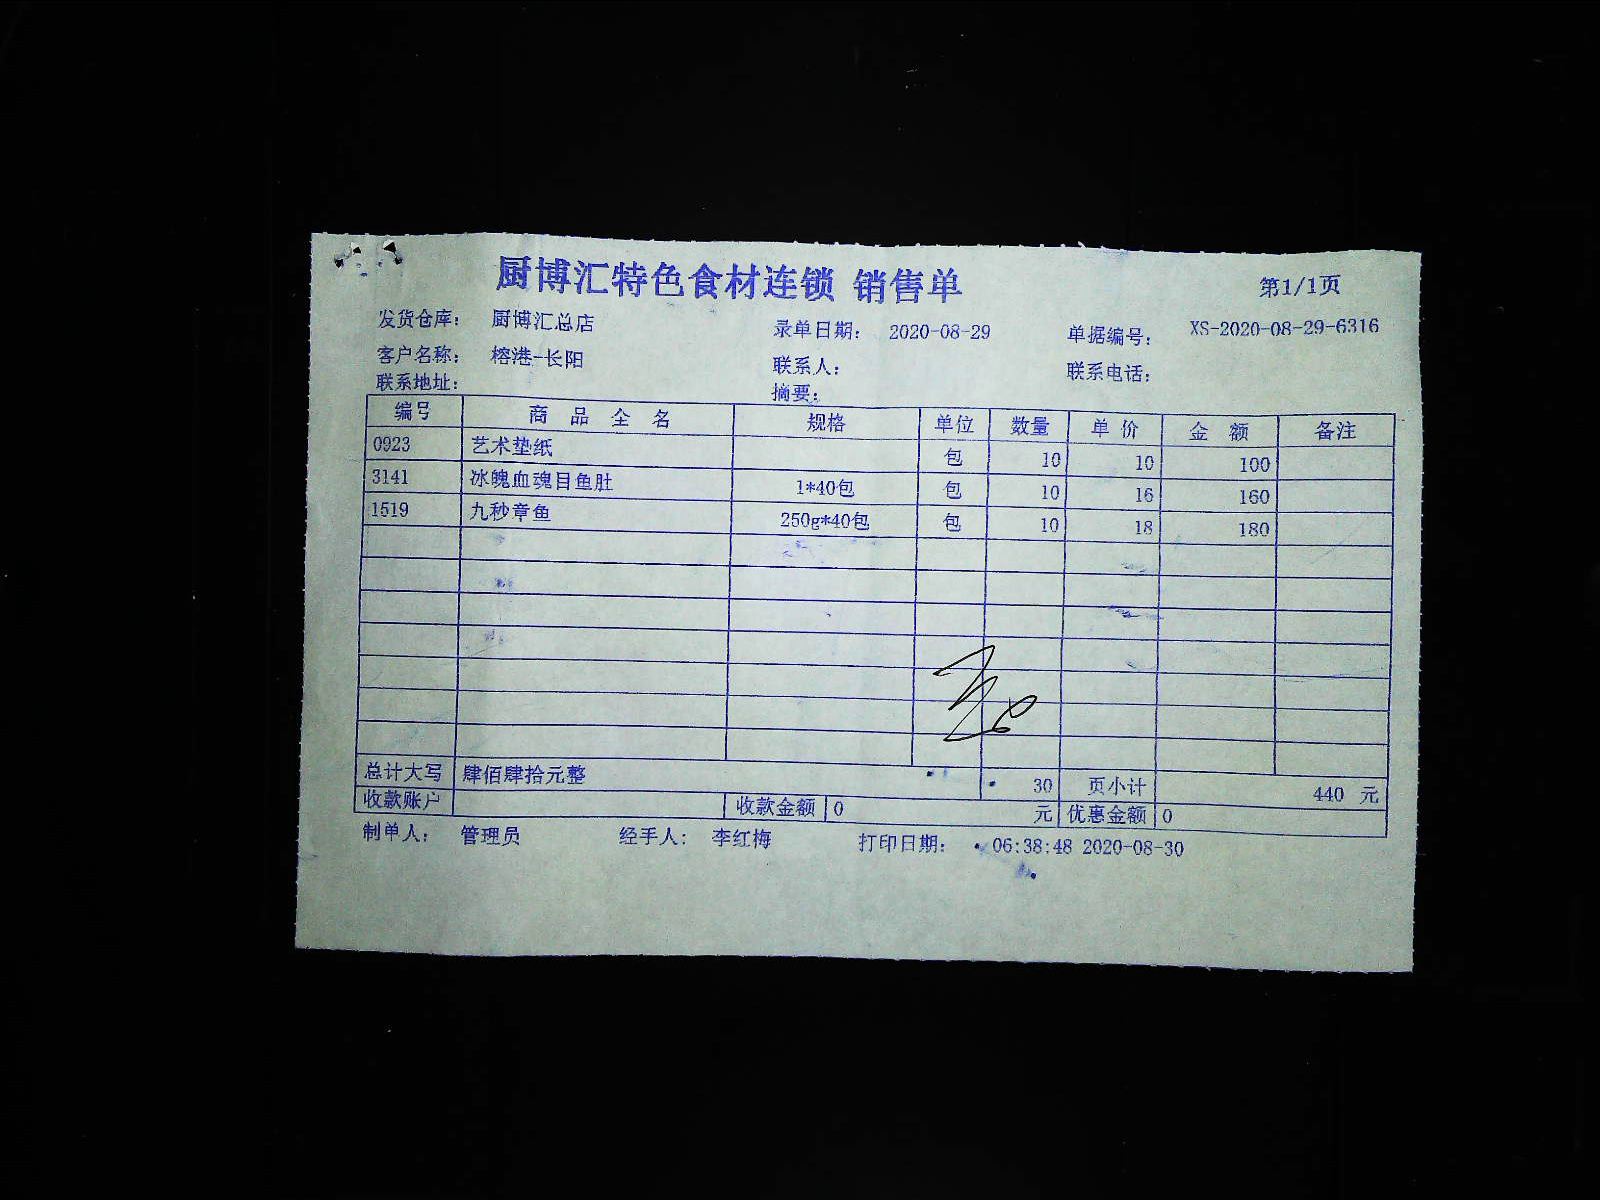 厨博汇特色食材连锁 销售单
第1/1页
发货仓库： 厨博汇总店 录单日期： 2020-08-29 单据编号： XS-2020-08-29-6316
客户名称： 榕港-长阳 联系人： 联系电话：
联系地址： 摘要：
编号 商品全名 规格 单位 数量 单价 金额 备注
0923 艺术垫纸 包 10 10 100
3141 冰魄血魂目鱼肚 1*40包 包 10 16 160
1519 九秒章鱼 250g*40包 包 10 18 180
总计大写 肆佰肆拾元整 30 页小计 440 元
收款账户 收款金额 0 元 优惠金额 0
制单人： 管理员 经手人： 李红梅 打印日期： 06:38:48 2020-08-30